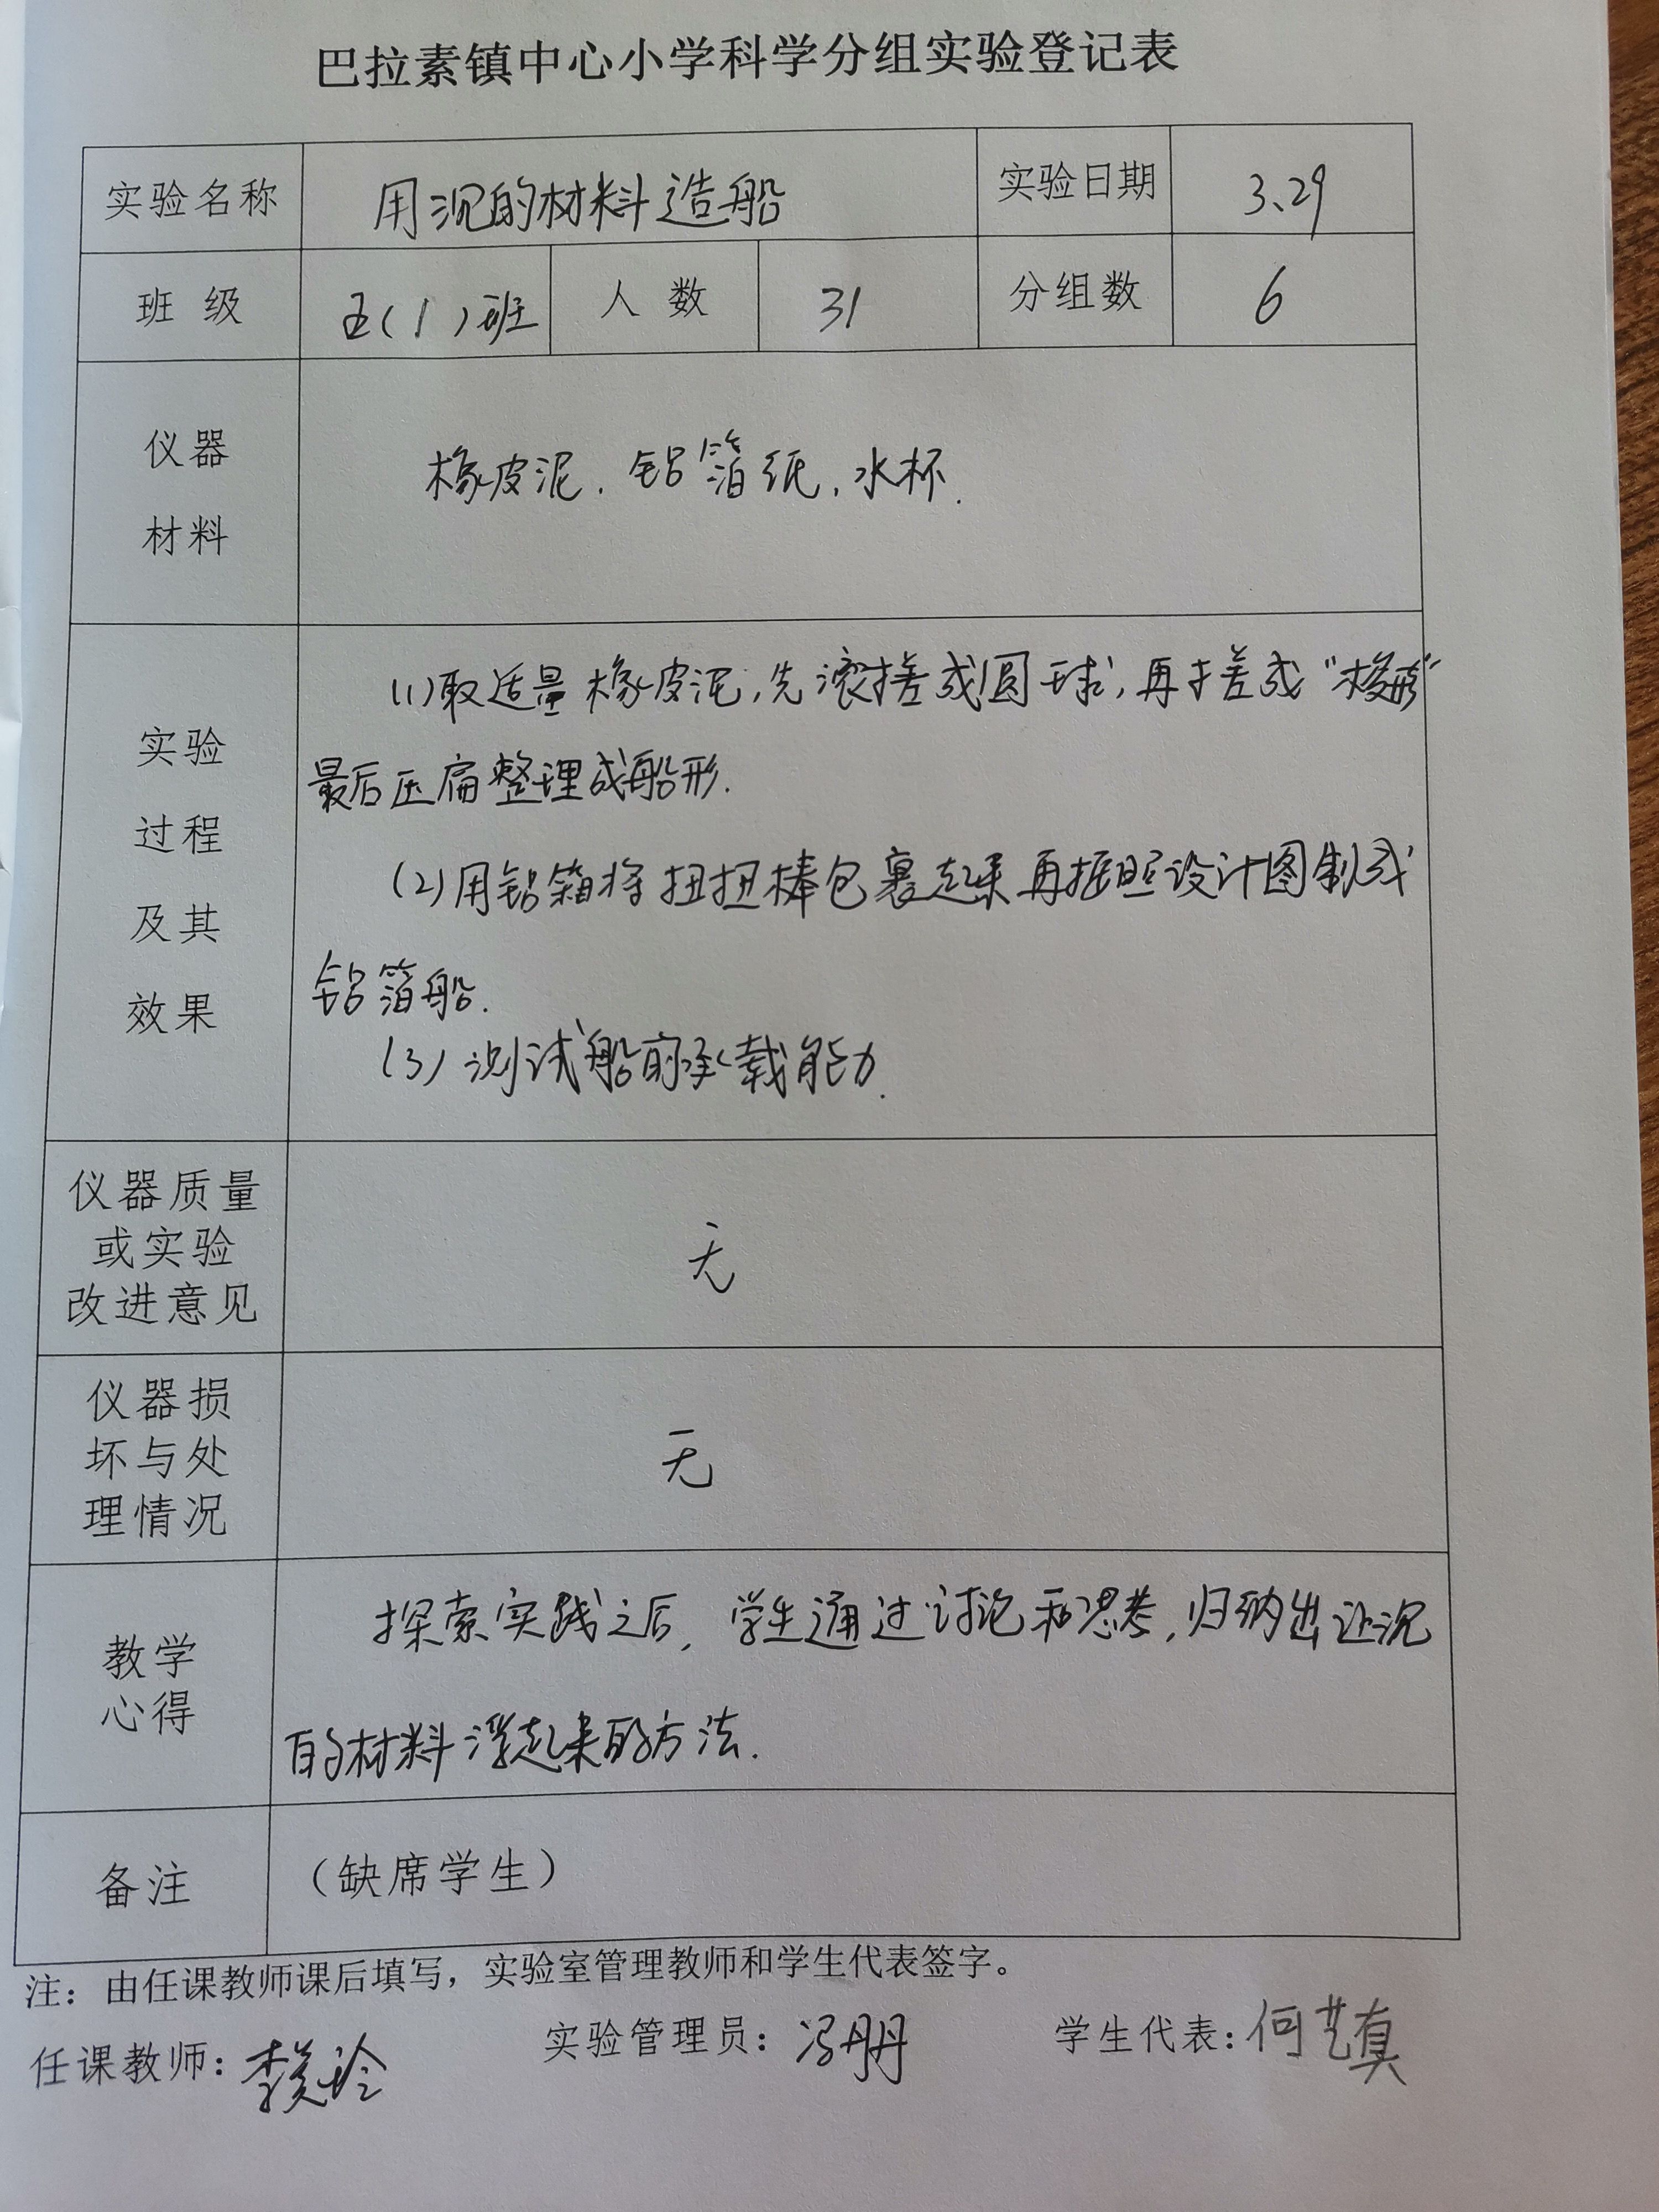 巴拉素镇中心小学科学分组实验登记表
实验名称 用沉的材料造船 实验日期 3、29
班 级 五(1)班 人 数 31 分组数 6
仪器
材料
橡皮泥. 铝箔纸, 水杯.
实验
过程
及其
效果
(1)取适量橡皮泥,先滚搓成圆球,再搓成"梭形"
最后压扁整理成船形.
(2)用铝箔将扭扭棒包裹起来再按照设计图制成
铝箔船.
(3)测试船的承载能力.
仪器质量
或实验
改进意见
无
仪器损
坏与处
理情况
无
教学
心得
探索实践之后, 学生通过讨论和思考,归纳出让沉
的材料浮起来的方法.
备注 （缺席学生）
注：由任课教师课后填写，实验室管理教师和学生代表签字。
任课教师: 李美玲 实验管理员: 冯丹丹 学生代表: 何艺真